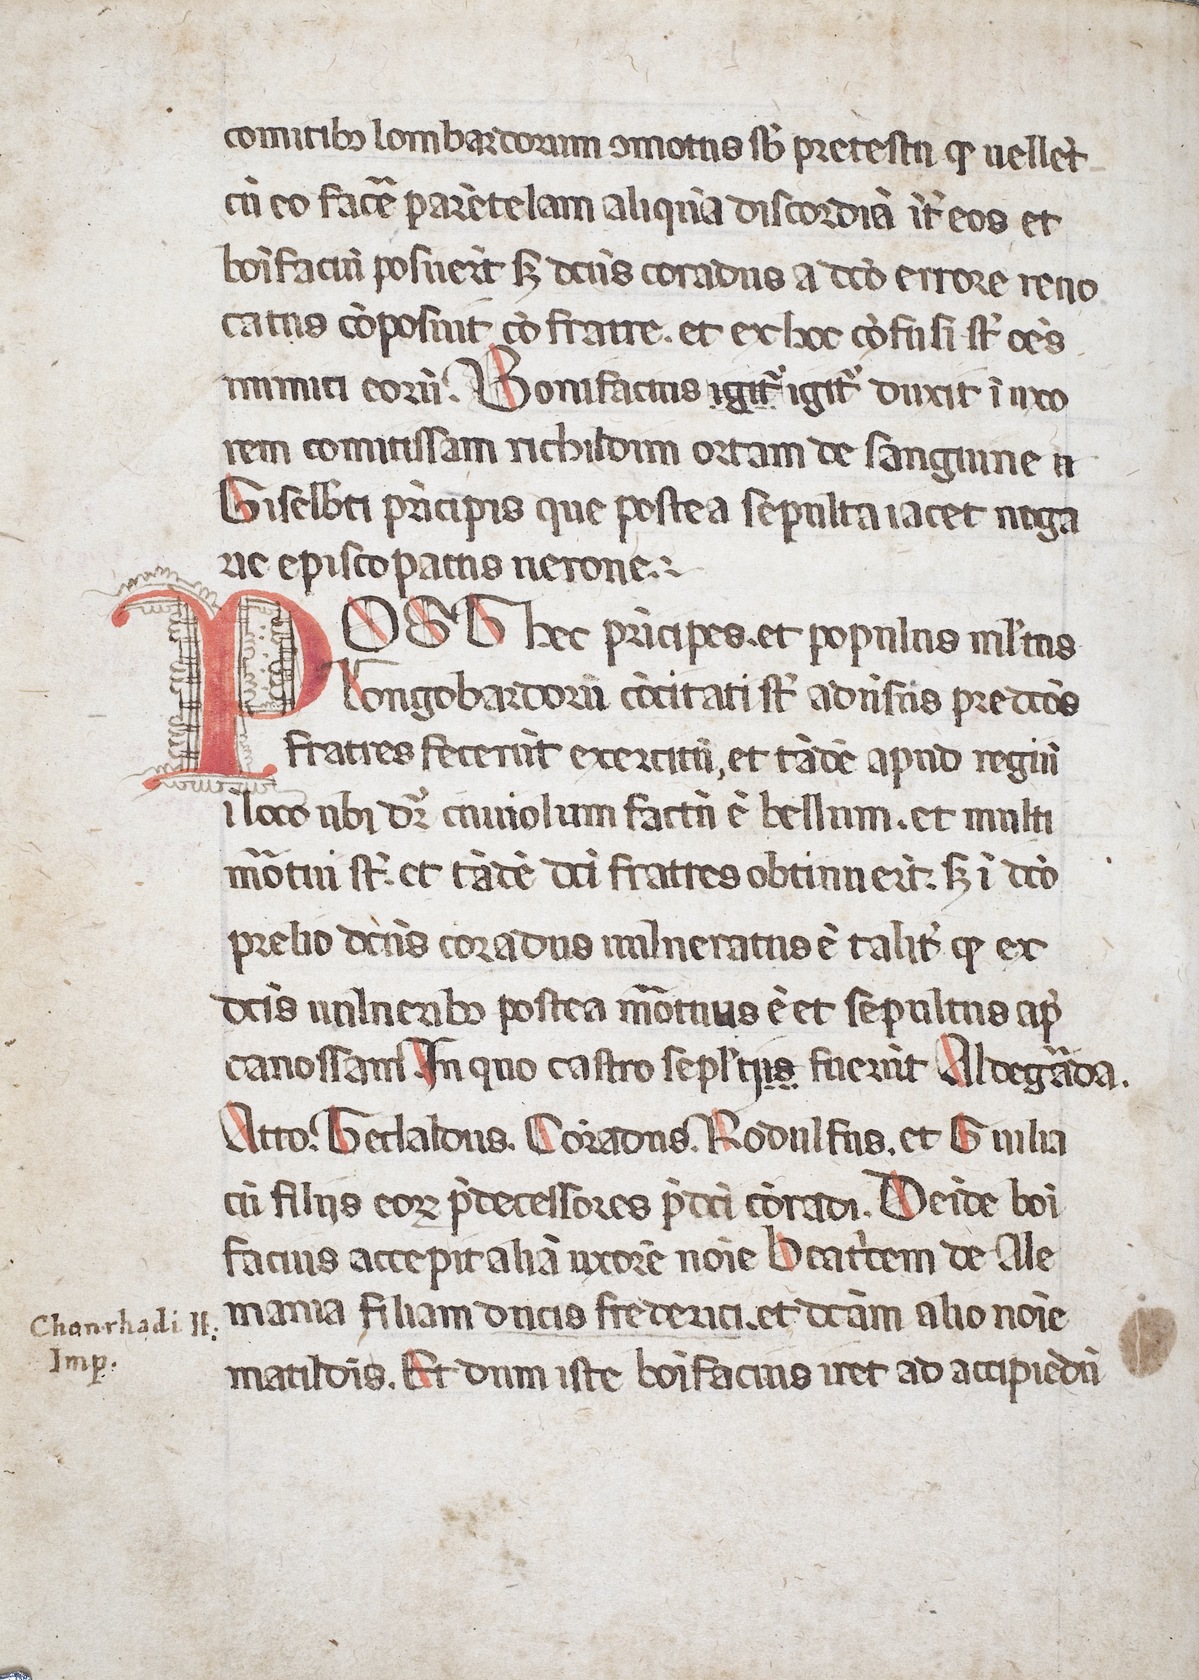 comitibꝫ lombardorum ꝯmotus sb̃ pretestu ꝙ uellet̃
cũ eo facẽ parẽtelam aliquã discordiã it̃ eos et
boĩfaciũ posuerĩt sꝫ dc̃us coradus a dc̃o errore reuo
catus cõposuit cõ fratre. et ex hoc cõfusi st̃ oẽs
inimici eorũ. Bonifacius igit̃ igit̃ duxit ĩ uxo
rem comitissam richildim ortam de sanguine n
Giselb̃ti prĩcipis que postea sepulta iacet noga
rie episcopatus uerone.
POST hec prĩcipes. et populus ml̃tus
Longobardorũ cõcitati st̃ aduĩsus predc̃os
fratres fecerũt exercitũ, et tãdẽ apud regiũ
ĩ loco ubi dr̃ cuuiolum factũ ẽ bellum. et multi
mõtui st̃. et tãdẽ dc̃i fratres obtinuerũt. sꝫ ĩ dc̃o
prelio dc̃us coradus uulneratus ẽ talit̃ ꝙ ex
dc̃is uulneribꝫ postea mõtuus ẽ et sepultus ap̃
canossam In quo castro sepl̃tus fuerũt Aldegãda.
Atto. Tedaldus. Coradus. Rodulfus. et Guilia
cũ filijs eoꝝ p̃decessores p̃dc̃i cõradi. Deĩde boĩ
facius accepit aliã uxorẽ noĩe beatr̃cem de Ale
mania filiam ducis frederici. et dc̃am alio noĩe
matildis. Et dum iste boĩfacius iret ad accipiẽdũ
Chonrhadi II.
Imp.